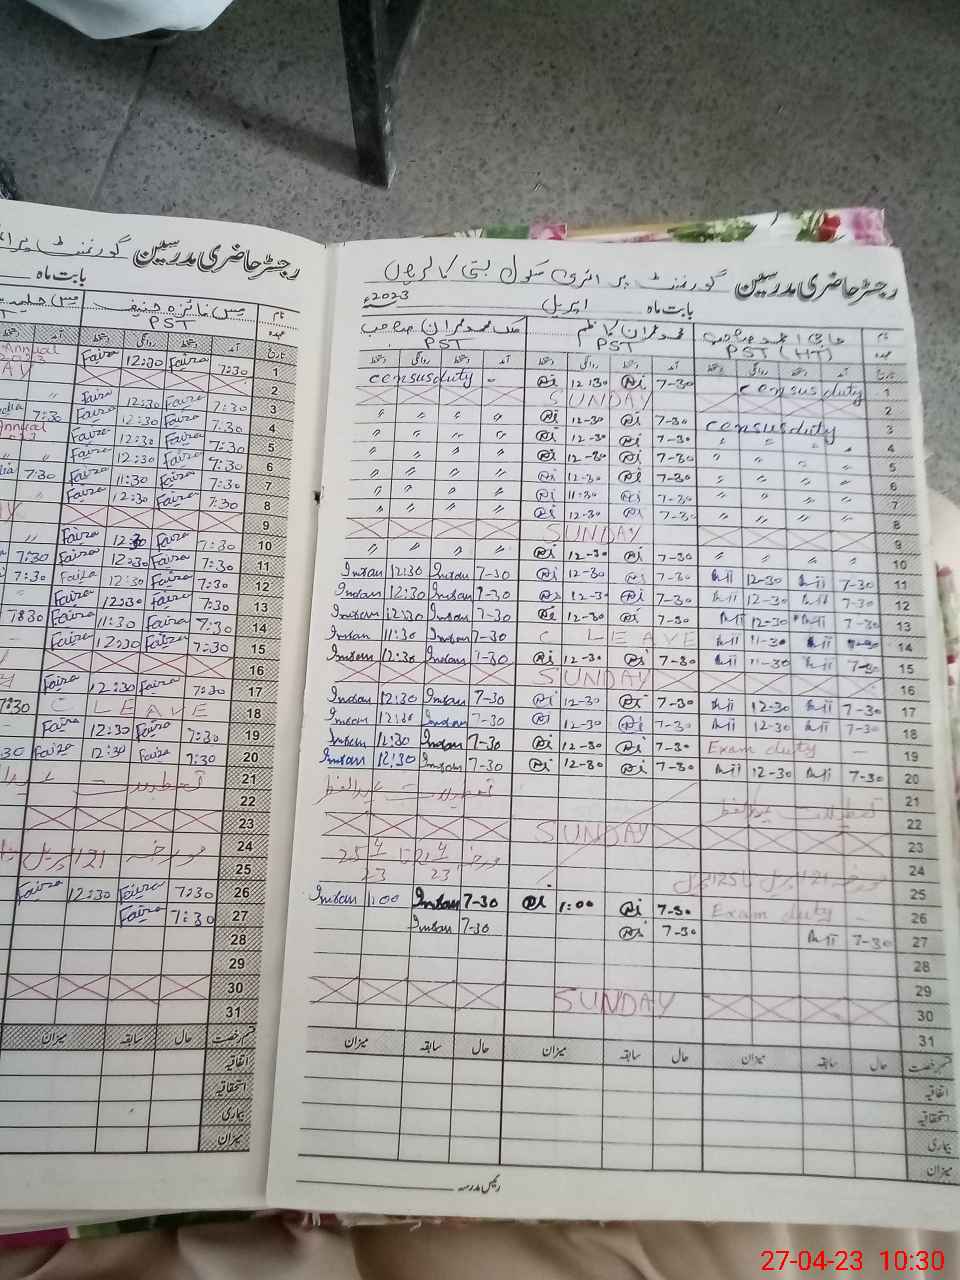 رجسٹر حاضری مدرسین گورنمنٹ پرا
بابت ماہ
نام مس فائزہ حنیف
عہدہ PST
تاریخ آمد دستخط روانگی دستخط آمد دستخط
1 7:30 Faiza 12:30 Faiza Annual
2
3 7:30 Faiza 12:30 Faiza "
4 7:30 Faiza 12:30 Faiza 7:30
5 7:30 Faiza 12:30 Faiza Annual
6 7:30 Faiza 12:30 Faiza " "
7 7:30 Faiza 11:30 Faiza 7:30
8 7:30 Faiza 12:30 Faiza "
9
10 7:30 Faiza 12:30 Faiza "
11 7:30 Faiza 12:30 Faiza 7:30
12 7:30 Faiza 12:30 Faiza 7:30
13 7:30 Faiza 12:30 Faiza "
14 7:30 Faiza 11:30 Faiza 7:30
15 7:30 Faiza 12:30 Faiza
16
17 7:30 Faiza 12:30 Faiza
18 C LEAVE 7:30
19 7:30 Faiza 12:30 Faiza
20 7:30 Faiza 12:30 Faiza 30
21 تعطیلات
22
23
24 مورخہ 21 اپریل
25
26 7:30 Faiza 12:30 Faiza
27 7:30 Faiza
28
29
30
31
قسم رخصت حال سابقہ میزان
اتفاقیہ
استحقاقیہ
بیماری
میزان
رجسٹر حاضری مدرسین گورنمنٹ پرائمری سکول بستی
بابت ماہ اپریل 2023ء
نام صاحب محمد عمران کاظم محمد عمران صاحب
عہدہ PST (HT) PST PST
تاریخ آمد دستخط روانگی دستخط آمد دستخط روانگی دستخط آمد دستخط روانگی دستخط
1 census duty 7-30 12:30 census duty -
2 SUNDAY
3 census duty 7-30 12-30 " " "
4 " " " " 7-30 12-30 " " " "
5 " " " " 7-30 12-30 " " " "
6 " " " " 7-30 12-30 " " " "
7 " " " " 7-30 11-30 " " " "
8 " " " " 7-30 12-30 " " " "
9 SUNDAY
10 " " " " 7-30 12-30 " " " "
11 7-30 12-30 7-30 12-30 7-30 Imran 12:30 Imran
12 7-30 12-30 7-30 12-30 7-30 Imran 12:30 Imran
13 7-30 12-30 7-30 12-30 7-30 Imran 12:30 Imran
14 7-30 11-30 C LEAVE 7-30 Imran 11:30 Imran
15 7-30 11-30 7-30 12-30 7-30 Imran 12:30 Imran
16 SUNDAY
17 7-30 12-30 7-30 12-30 7-30 Imran 12:30 Imran
18 7-30 12-30 7-30 12-30 7-30 Imran 12:30 Imran
19 Exam duty 7-30 12-30 7-30 Imran 12:30 Imran
20 7-30 12-30 7-30 12-30 7-30 Imran 12:30 Imran
21 تعطیلات عیدالفطر تعطیلات عیدالفطر
22
23 SUNDAY
24 مورخہ 21 اپریل تا 25 اپریل مورخہ 21 4/23 تا 25 4/23
25
26 Exam duty - 7-30 1:00 7-30 Imran 1:00 Imran
27 7-30 7-30 7-30 Imran
28
29
30 SUNDAY
31
قسم رخصت حال سابقہ میزان حال سابقہ میزان حال سابقہ میزان
اتفاقیہ
استحقاقیہ
بیماری
میزان
رئیس مدرسہ
27-04-23 10:30